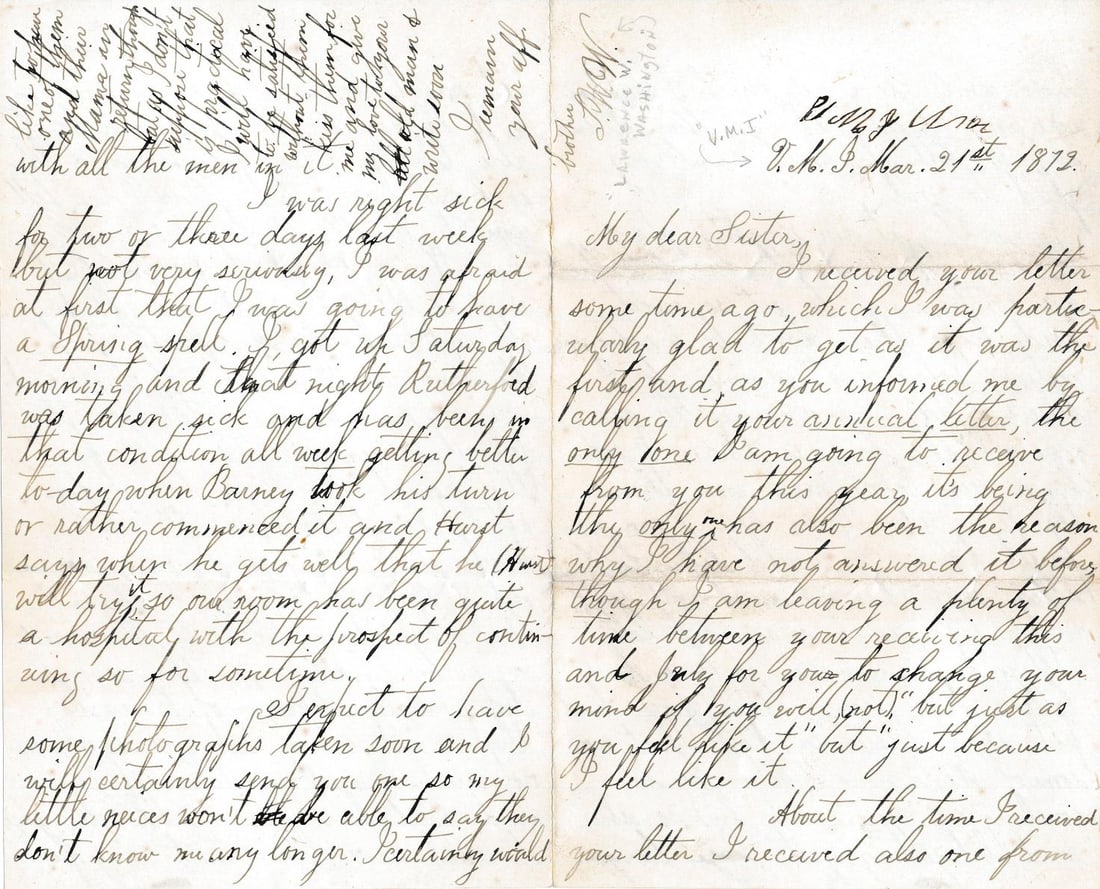 "V.M.I"
V. M. I. Mar. 21st 1872.
My dear Sister,
I received your letter
some time ago, which I was partic-
ularly glad to get as it was the
first and, as you informed me by
calling it your annual letter, the
only one I am going to receive
from you this year, it's being
the only one has also been the reason
why I have not answered it before,
though I am leaving a plenty of
time between your receiving this
and July for you to change your
mind if you will, (not), "but just as
you feel like it" but "just because
I feel like it
About the time I received
your letter I received also one from
with all the men in it.
I was right sick
for two or three days last week
but not very seriously, I was afraid
at first that I was going to have
a Spring spell. I got up Saturday
morning and that night Rutherford
was taken sick and has been in
that condition all week getting better
to-day when Barney took his turn
or rather commenced it and Hurst
says when he gets well that he (Hurst
will try it, so our room has been quite
a hospital with the prospect of contin-
uing so for sometime.
I expect to have
some photographs taken soon and I
will certainly send you one so my
little neices won't be able to say they
don't know me any longer. I certainly would
like to have
one of them
and their
Mama in
return though
as I don't
suppose that
is practical
I will have
to be satisfied
without them
kiss them for
me and give
my love to your
old man &
write soon
I remain
your aff.
brother
L.W.W.
Lawrence W.
Washington